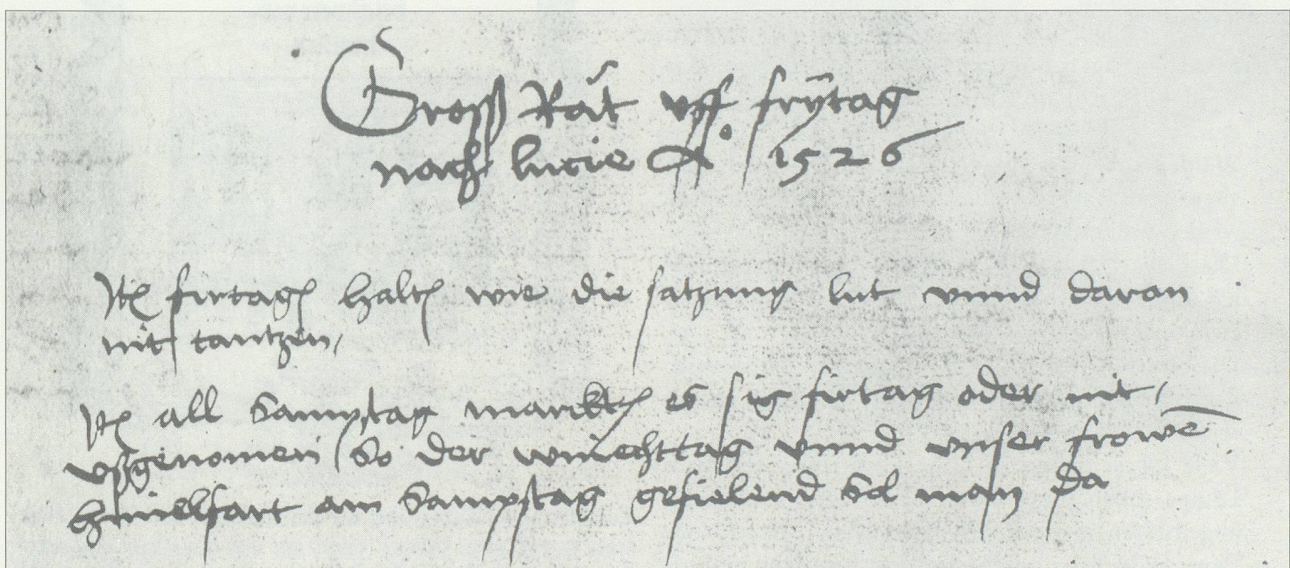 Gross Rat uff frytag
nach lucie A° 1526
Jt firtag halt wie die satzung lut unnd daran
nit tantzen,
Jt all Sampstag marckt es sig firtag oder nit,
ussgenomen so der wiehttag unnd unser frowē
himelfart am Sampstag gefielend Sol man da